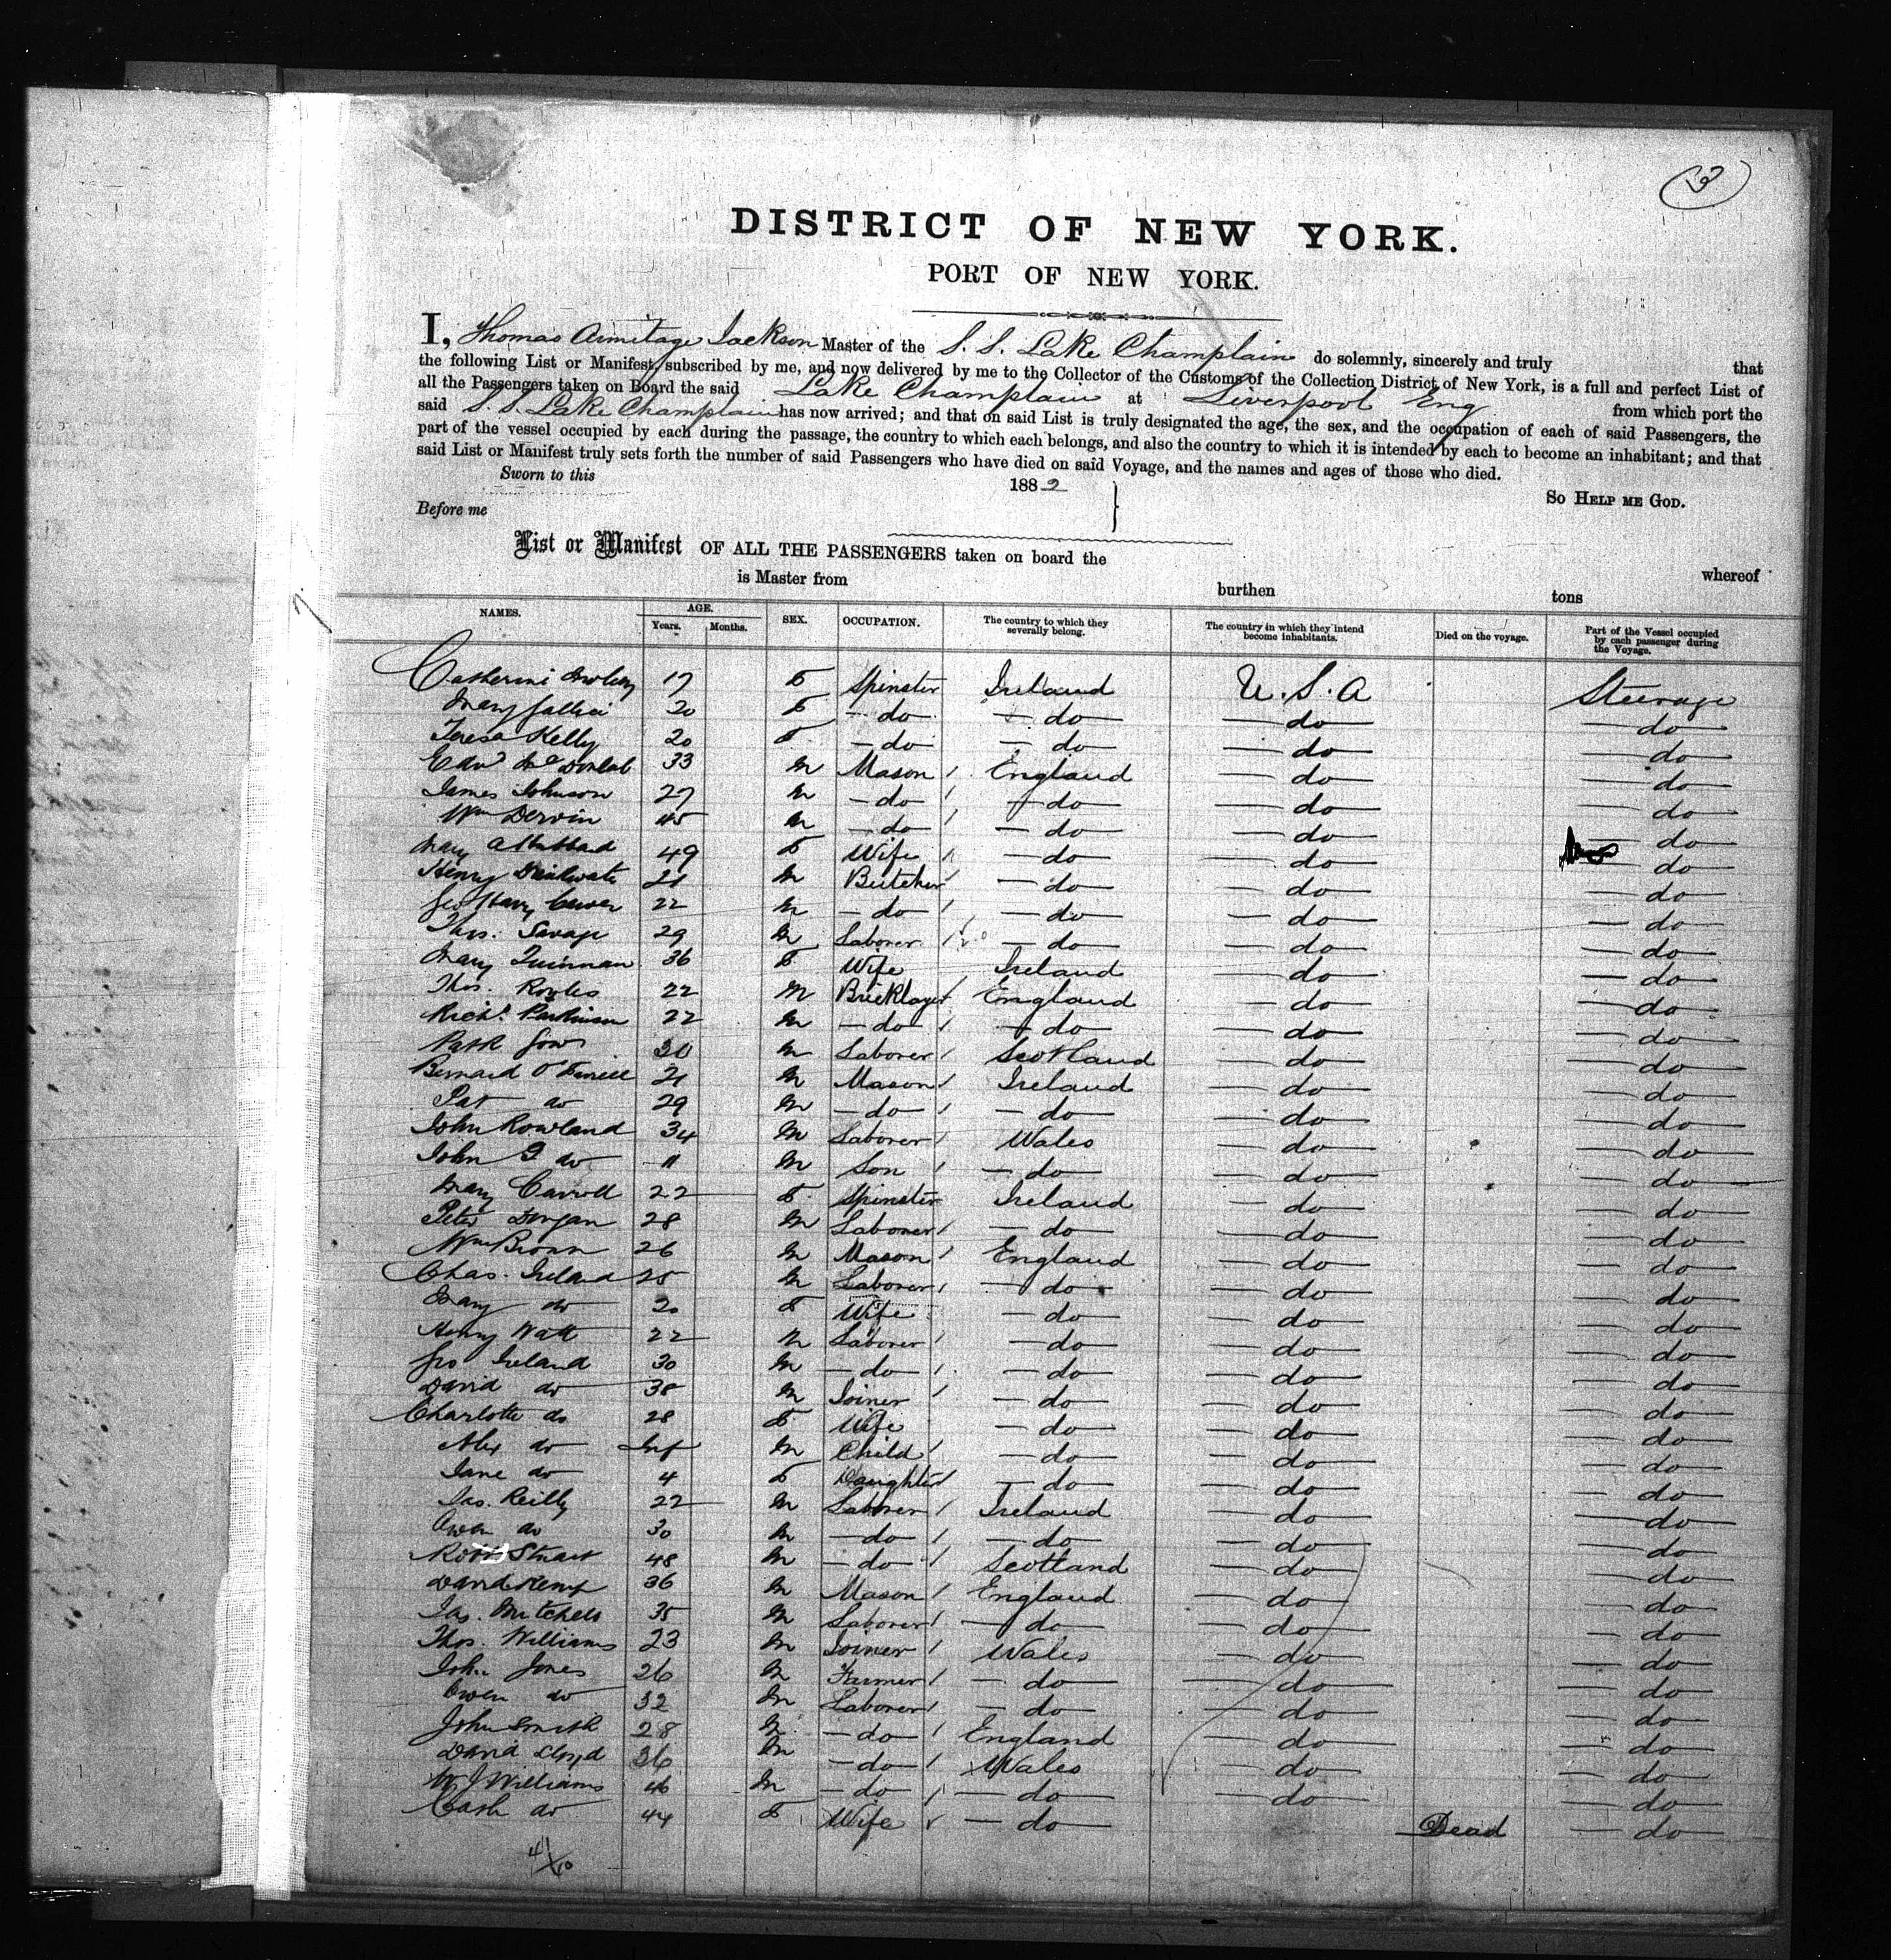 3
DISTRICT OF NEW YORK.
PORT OF NEW YORK.
I, Thomas Armitage Jackson Master of the S. S. Lake Champlain do solemnly, sincerely and truly that
the following List or Manifest, subscribed by me, and now delivered by me to the Collector of the Customs of the Collection District of New York, is a full and perfect List of
all the Passengers taken on Board the said Lake Champlain at Liverpool Eng from which port the
said S. S. Lake Champlain has now arrived; and that on said List is truly designated the age, the sex, and the occupation of each of said Passengers, the
part of the vessel occupied by each during the passage, the country to which each belongs, and also the country to which it is intended by each to become an inhabitant; and that
said List or Manifest truly sets forth the number of said Passengers who have died on said Voyage, and the names and ages of those who died.
Sworn to this 1882 So HELP ME GOD.
Before me
List or Manifest OF ALL THE PASSENGERS taken on board the whereof
is Master from burthen tons
NAMES. AGE. Years. Months. SEX. OCCUPATION. The country to which they severally belong. The country in which they intend become inhabitants. Died on the voyage. Part of the Vessel occupied by each passenger during the Voyage.
Catherine 17 F Spinster Ireland U.S.A Steerage
Mary 20 F do do do do
Teresa Kelly 20 F do do do do
Edwd 33 M Mason England do do
James Johnson 27 M do do do do
Wm Dervin 45 M do do do do
Mary A 49 F Wife do do do
Henry 21 M Butcher do do do
Geo Harry 22 M do do do do
Thos. Savage 29 M Laborer do do do
Mary 36 F Wife Ireland do do
Thos. 22 M Bricklayer England do do
Richd. Parkinson 22 M do do do do
Patk 30 M Laborer Scotland do do
Bernard 21 M Mason Ireland do do
Pat do 29 M do do do do
John Rowland 34 M Laborer Wales do do
John do 11 M Son do do do
Mary Carroll 22 F Spinster Ireland do do
Peter 28 M Laborer do do do
Wm Brown 26 M Mason England do do
Chas. Ireland 25 M Laborer do do do
Mary do 20 F Wife do do do
Henry Watt 22 M Laborer do do do
Jno Ireland 30 M do do do do
David do 38 M Joiner do do do
Charlotte do 28 F Wife do do do
Alex do Inf M Child do do do
Jane do 4 F Daughter do do do
Jas. Reilly 22 M Laborer Ireland do do
Owen do 30 M do do do do
Robt Stuart 48 M do Scotland do do
David Kemp 36 M Mason England do do
Jas. Mitchell 35 M Laborer do do do
Thos. Williams 23 M Joiner Wales do do
John Jones 26 M Farmer do do do
Owen do 32 M Laborer do do do
John Smith 28 M do England do do
David Lloyd 26 M do Wales do do
W J Williams 46 M do do do do
Cath do 44 F Wife do Dead do